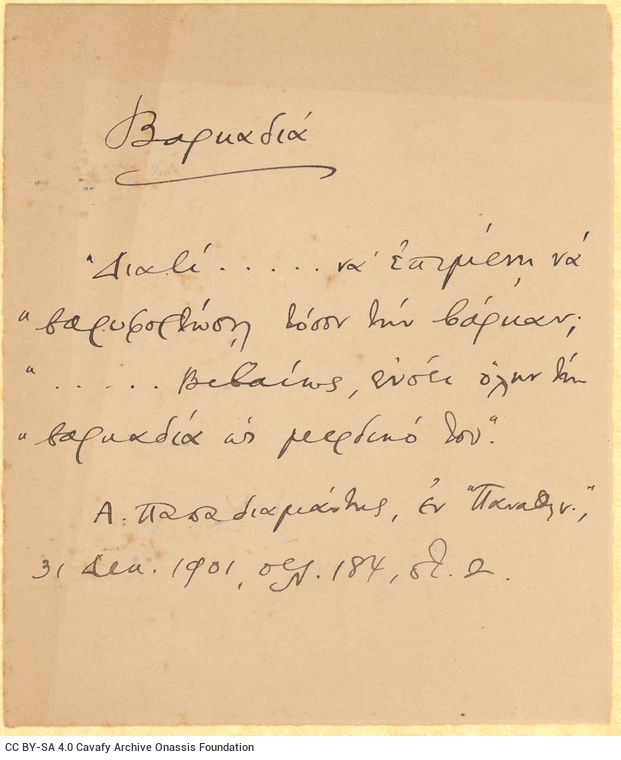 Βαρκαδιά
"Διατί . . . . . νά ἐπιμένῃ νά
"βαρυφορτώσῃ τόσον τήν βάρκαν;
" . . . . . . Βεβαίως, εὐνοεῖ ὅλην τήν
"βαρκαδιά ὡς μερδικό του".
Α. Παπαδιαμάντης, ἐν "Παναθην.",
31 Δεκ. 1901, σελ. 184, στ. 2.
CC BY-SA 4.0 Cavafy Archive Onassis Foundation